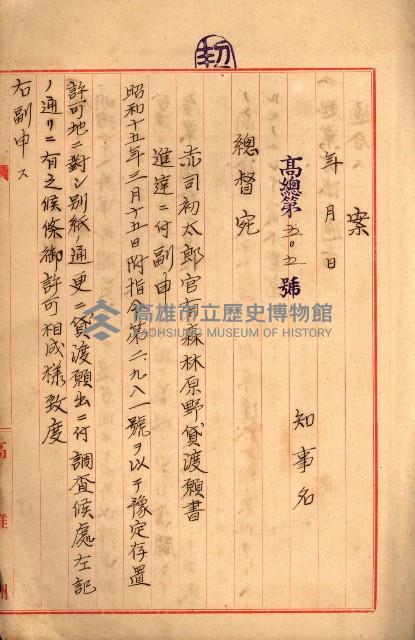 案
年 月 日
高總第五〇五號
知事名
總督宛
赤司初太郎官有森林原野貸渡願書
進達ニ付副申
昭和十五年三月十五日附指令第二九八一號ヲ以テ豫定存置
許可地ニ對シ別紙ノ通更ニ貸渡願出ニ付調查候處左記
ノ通リニ有之候條御許可相成樣致度
右副申ス
高雄州
高雄市立歷史博物館
KAOHSIUNG MUSEUM OF HISTORY